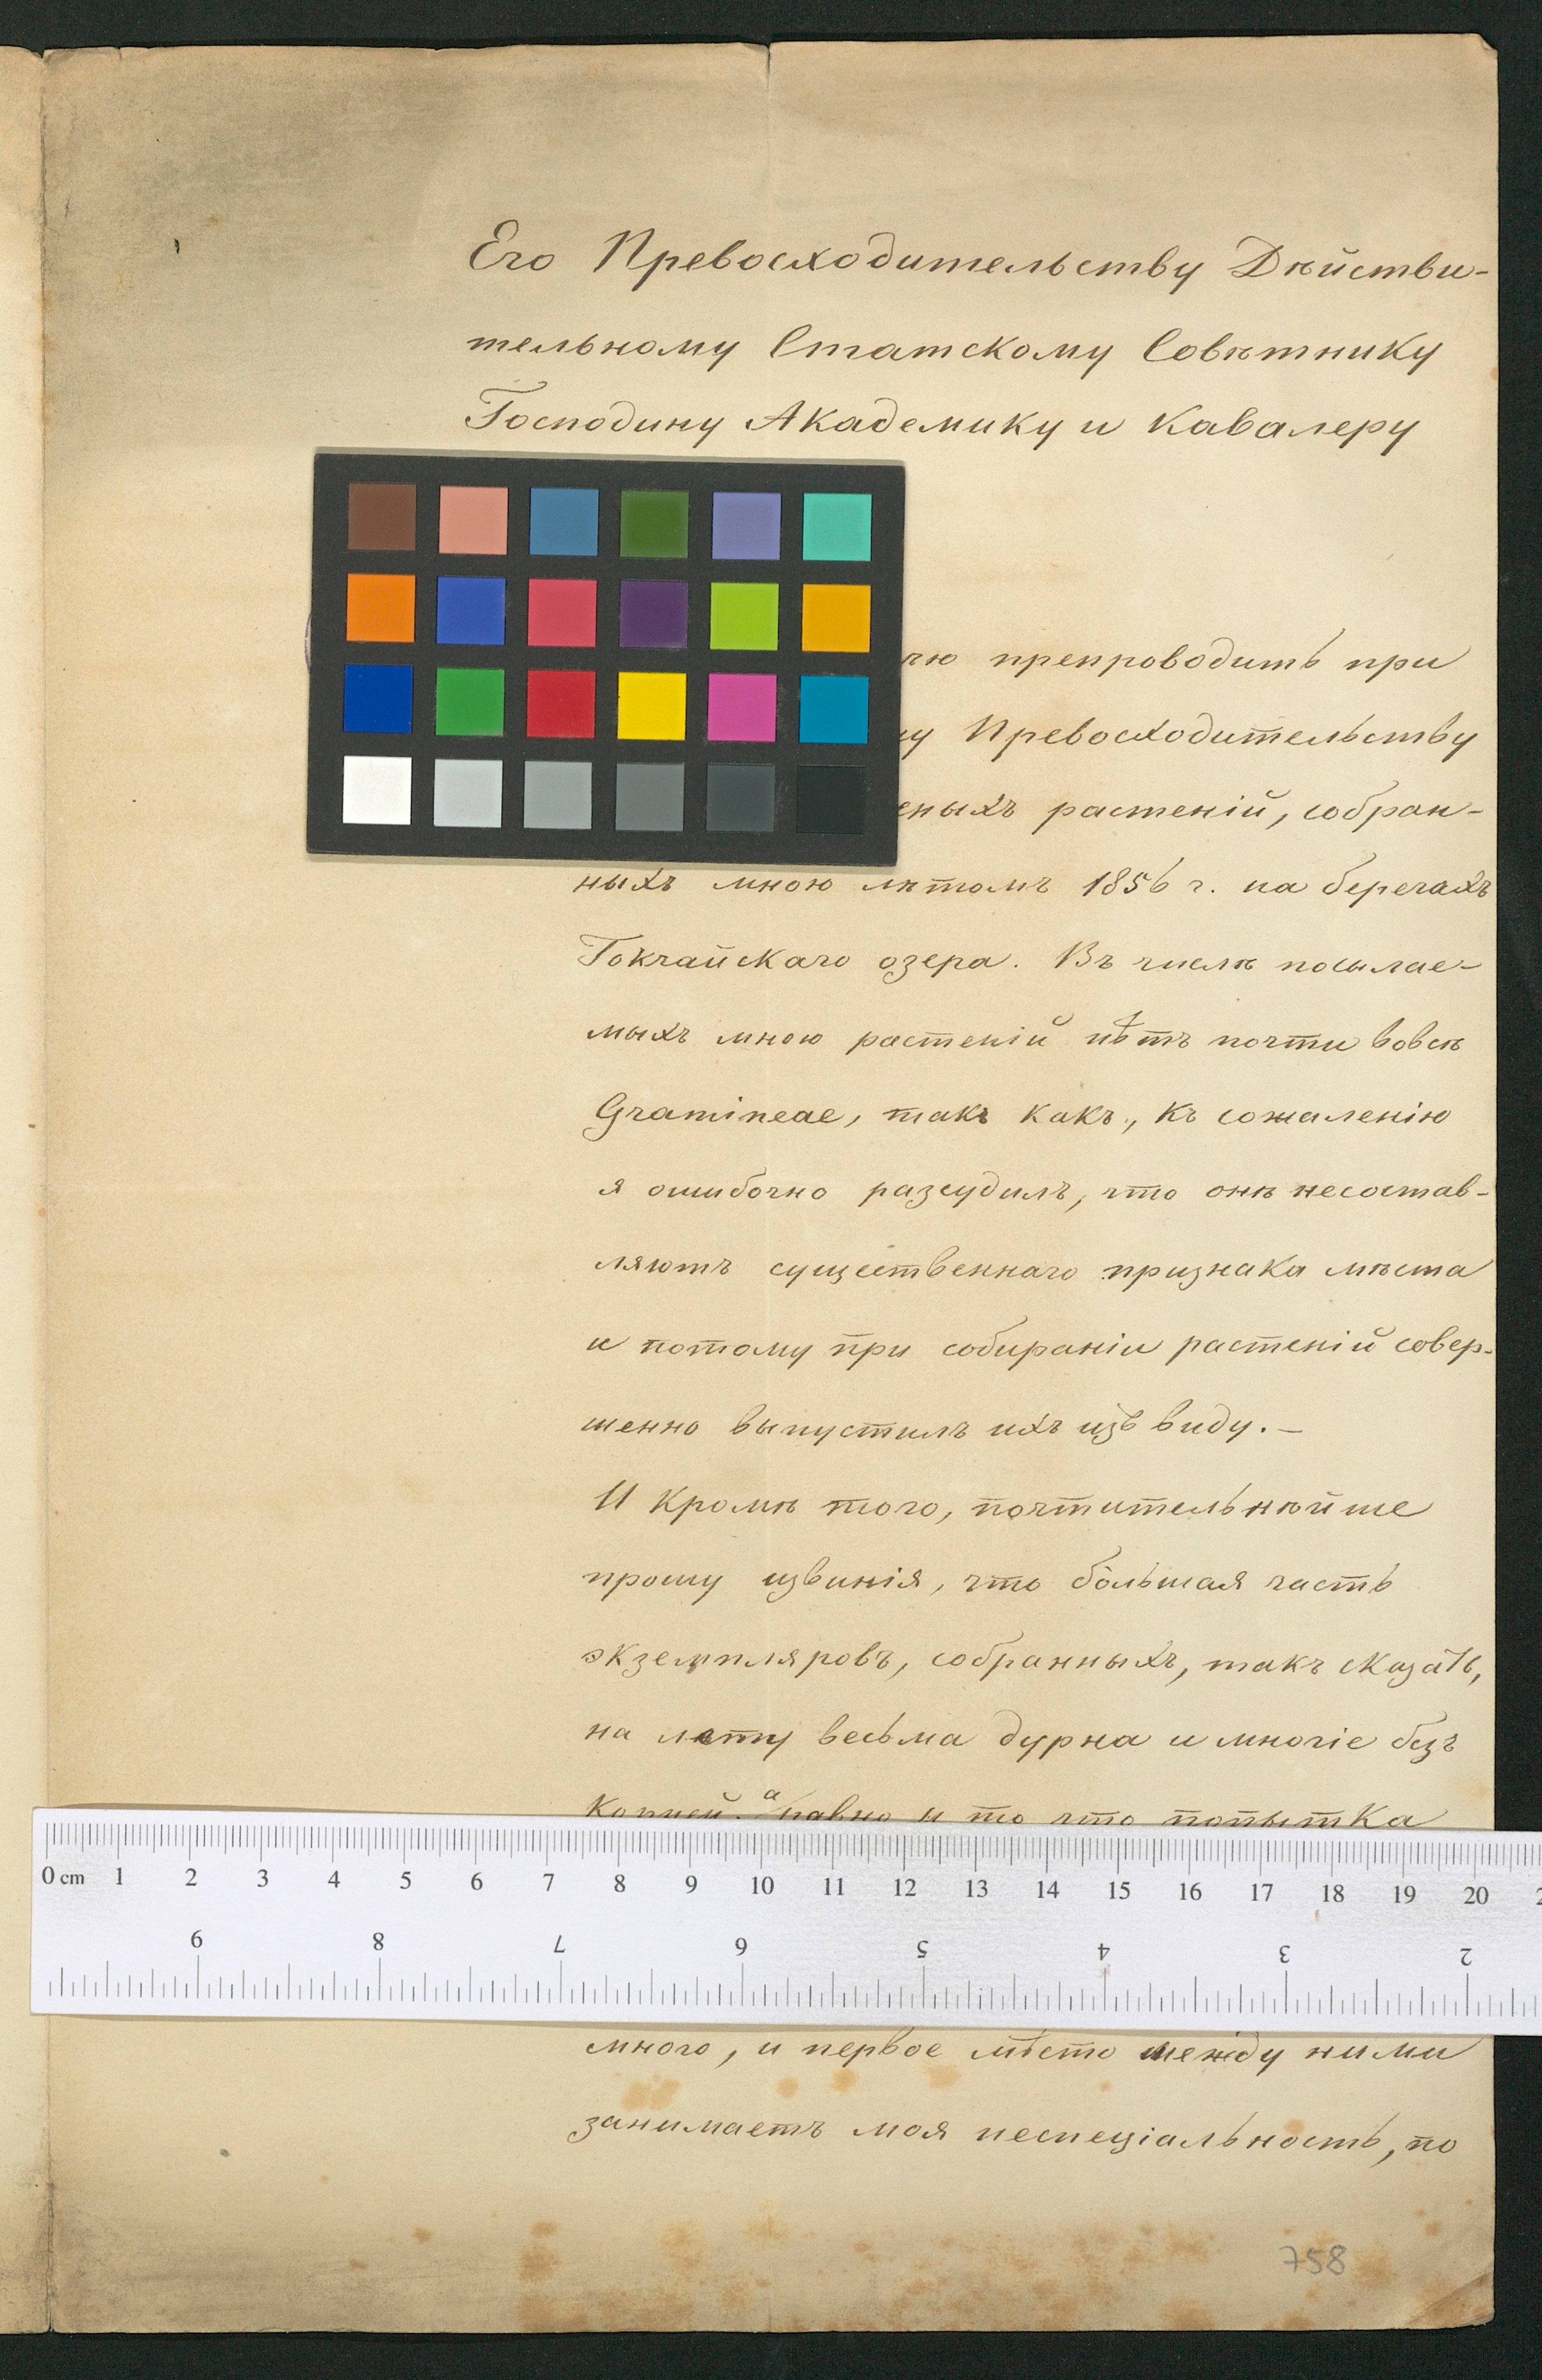 Его Превосходительству Дѣйстви-
тельному Статскому Совѣтнику
Господину Академику и Кавалеру
препроводить при
Превосходительству
растеній, собран-
ныхъ мною лѣтомъ 1856 г. на берегахъ
Гокчайскаго озера. Въ числѣ посылае-
мыхъ мною растеній нѣтъ почти вовсѣ
Gramineae, такъ какъ, къ сожаленію
я ошибочно разсудилъ, что онѣ несостав-
ляютъ существеннаго признака мѣста
и потому при собираніи растеній совер-
шенно выпустилъ ихъ изъ виду.—
И кромѣ того, почтительнѣйше
прошу извинія, что бо̀льшая часть
экземпляровъ, собранныхъ, такъ сказать,
на лету весьма дурна и многіе безъ
корней. а равно и то что попытка
0 cm 1 2 3 4 5 6 7 8 9 10 11 12 13 14 15 16 17 18 19 20
9 8 7 6 5 4 3 2
много, и первое мѣсто между ними
занимаетъ моя неспеціальность, по
758